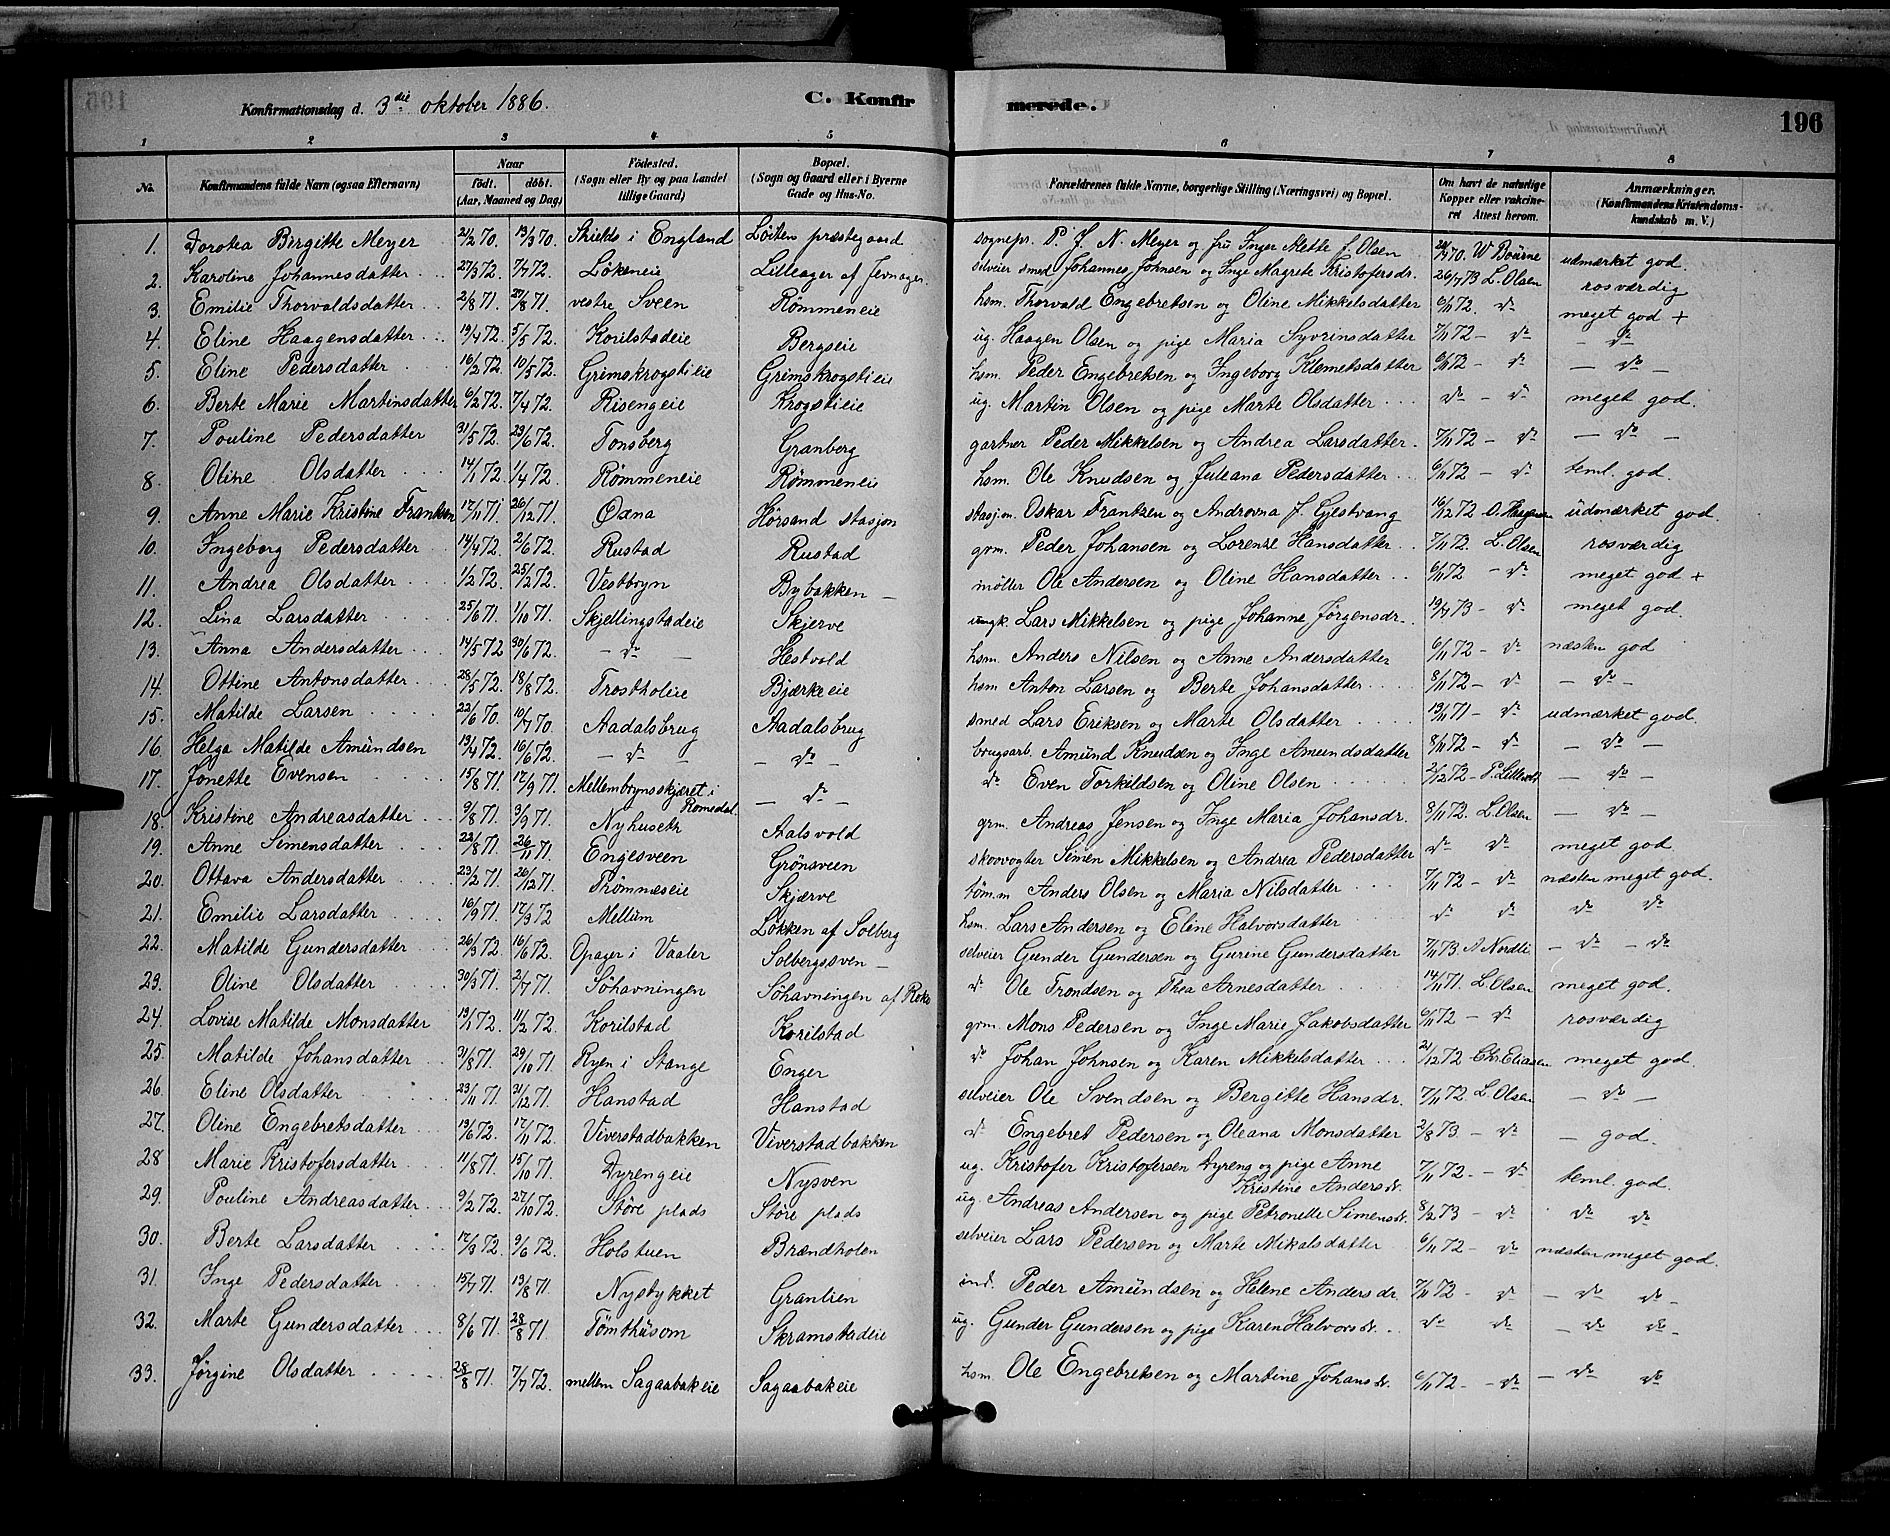 Konfirmationsdag d. 3die oktober 1886. C. Konfirmerede. 196
1 2 3 4 5 6 7 8
No. Konfirmandens fulde Navn (ogsaa Efternavn) Naar født. døbt. (Aar, Maaned og Dag) Fødested. (Sogn eller By og paa Landet tillige Gaard) Bopæl. (Sogn og Gaard eller i Byerne Gade og Hus-No. Forældrenes fulde Navne, borgerlige Stilling (Næringsvei) og Bopæl. Om havt de naturlige Kopper eller vakcineret Attest herom. Anmærkninger. (Konfirmandens Kristendomskundskab m. V.)
1. Dorotea Birgitte Meyer 2/2 70. 13/3 70. Shields i England Løiten præstegaard sognepr. P. J. N. Meyer og fru Inger Mette f. Olsen 70 W Bourne udmærket god.
2. Karoline Johannesdatter 27/3 72. 7/7 72. Løkeneie Lilleager af Jevnager. selveier smed Johannes Johnsen og Inge Magrete Kristofersdr. 26/7 73 L. Olsen rosværdig
3. Emilie Thorvaldsdatter 2/8 71. 27/8 71. vestre Sveen Rømmeneie hsm. Thorvald Engebretsen og Oline Mikkelsdatter 6/11 72. do meget god +
4. Eline Haagensdatter 19/4 72. 5/5 72. Korilstadeie Bergseie ug. Haagen Olsen og pige Maria Syvrinsdatter 7/11 72 - do - do -
5. Eline Pedersdatter 16/2 72. 10/5 72. Grimskrogstieie Grimskrogstieie hsm. Peder Engebretsen og Ingeborg Klemetsdatter 6/11 72 - do - do -
6. Berte Marie Martinsdatter 6/2 72. 7/4 72. Risengeie Krogstieie ug. Martin Olsen og pige Marte Olsdatter do - do meget god.
7. Pouline Pedersdatter 31/5 72. 23/6 72. Tonsberg Granberg gartner Peder Mikkelsen og Andrea Larsdatter 7/11 72 - do - do -
8. Oline Olsdatter 14/1 72. 1/4 72. Rømmeneie Rømmeneie hsm. Ole Knudsen og Juleana Pedersdatter 6/11 72 - do teml. god.
9. Anne Marie Kristine Frantzen 17/11 71. 26/12 71. Oxna Hørsand stasjon stasjon. Oskar Frantzen og Androvna f. Gjestvang 16/12 72 O. Haagensen udmærket god.
10. Ingeborg Pedersdatter 14/4 72. 2/6 72. Rustad Rustad grm. Peder Johansen og Lorense Hansdatter 7/11 72. L. Olsen rosværdig
11. Andrea Olsdatter 1/2 72. 25/2 72. Vestbryn Bybakken møller Ole Andersen og Oline Hansdatter 6/11 72 - do meget god +
12. Lina Larsdatter 25/6 71. 1/10 71. Skjellingstadeie Skjerve ungk. Lars Mikkelsen og pige Johanne Jørgensdr. 19/7 73 - do meget god
13. Anna Andersdatter 14/5 72 30/6 72. - do - Hestvold hsm. Anders Nilsen og Anne Andersdatter 6/11 72 - do næsten god
14. Ottine Antonsdatter 28/5 72. 18/8 72. Trostholeie Bjærkeie hsm Anton Larsen og Berte Johansdatter 8/11 72 - do - do -
15. Matilde Larsen 22/6 70. 10/7 70. Aadalsbrug Aadalsbrug smed Lars Eriksen og Marte Olsdatter 19/11 71 - do udmærket god.
16. Helga Matilde Amundsen 13/4 72. 16/6 72. - do - - do - brugsarb. Amund Knudsen og Inge Amundsdatter 8/11 72 - do - do -
17. Jonette Evensen 15/8 71. 17/9 71. Mellembrynsskjæret i Romedal - do - do Even Torkildsen og Oline Olsen 2/12 72 - P. - do -
18. Kristine Andreasdatter 9/8 71. 3/9 71. Nyhuseth Aalsvold grm. Andreas Jensen og Inge Maria Johansdr. 8/11 72. L Olsen - do -
19. Anne Simensdatter 22/8 71. 26/11 71. Engesveen Grønsveen skoovogter Simen Mikkelsen og Andrea Pedersdatter do do meget god
20. Ottava Andersdatter 23/2 71. 26/12 71. Trømnæseie Skjærve tømm Anders Olsen og Maria Nilsdatter 7/11 72 - do næsten meget god.
21. Emilie Larsdatter 16/9 71. 17/3 72 Mellum Løkken af Solberg hsm. Lars Andersen og Eline Halvorsdatter do do do do
22. Matilde Gundersdatter 26/3 72. 16/6 72. Opager i Vaaler Solbergssven - selveier Gunder Gundersen og Gurine Gundersdatter 7/11 73. A Nordli - do - do
23. Oline Olsdatter 30/3 71. 2/7 71. Söhavningen Söhavningen af Roko do Ole Trondsen og Thea Arnesdatter 14/11 71. L Olsen meget god.
24. Lovise Matilde Monsdatter 13/1 72. 11/2 72. Korilstad Korilstad grm. Mons Pedersen og Inge Marie Jakobsdatter 6/11 72 - do rosværdig
25. Matilde Johansdatter 31/8 71. 29/10 71. Ryen i Stange Enger do Johan Johnsen og Karen Mikkelsdatter 21/12 72 Chr. Eliassen meget god.
26. Eline Olsdatter 23/11 71. 31/12 71. Hanstad Hanstad selveier Ole Svendsen og Bergitte Hansdr. 7/11 72. L Olsen - do -
27. Oline Engebretsdatter 19/6 72. 17/11 72. Viverstadbakken Viverstadbakken do Engebret Pedersen og Oleana Monsdatter 2/8 73 - do - god.
28 Marie Kristofersdatter 11/8 71. 15/10 71. Dyrengeie Nysven ug. Kristofer Kristofersen Dyreng og pige Anne Kristine Andersdr. 7/11 72 - do teml. god.
29. Pouline Andreasdatter 9/2 72. 27/10 72. Støre plads Støre plads ug. Andreas Andersen og pige Petronelle Simensdr. 8/2 73 - do do do
30. Berte Larsdatter 17/3 72. 9/6 72. Holstuen Brændholen selveier Lars Pedersen og Marte Mikalsdatter 6/11 72 - do næsten meget god.
31. Inge Pedersdatter 15/7 71. 13/8 71. Nystykket Granlien ind. Peder Amundsen og Helene Andersdr. 7/11 72 - do - do do -
32. Marte Gundersdatter 8/6 71. 28/8 71. Tømthusom Skramstadeie ug. Gunder Gundersen og pige Karen Halvorsdr. do do - do do -
33. Jørgine Olsdatter 28/8 71. 7/7 72. mellem Sagaabakeie Sagaabakeie hsm. Ole Engebretsen og Martine Johansdr. 6/11 72 - do - do do